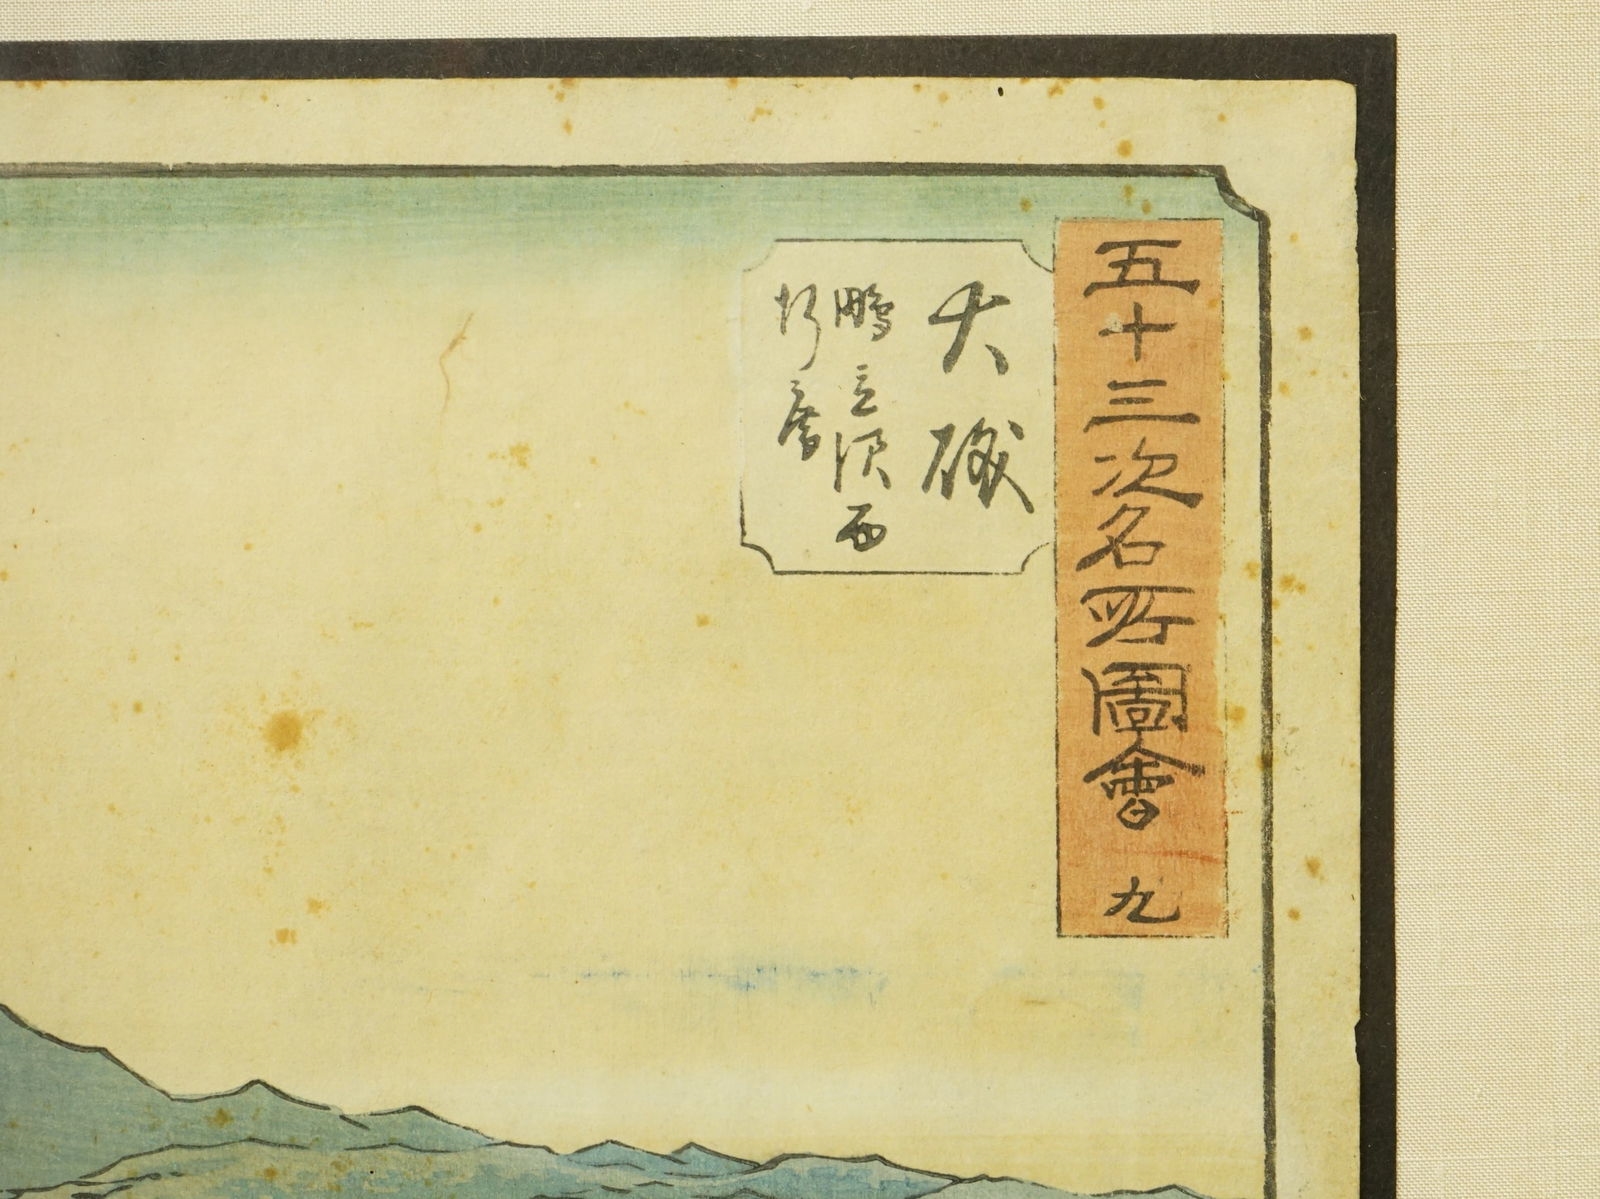 五十三次名所圖會 九
大磯
鴫立沢西
行庵